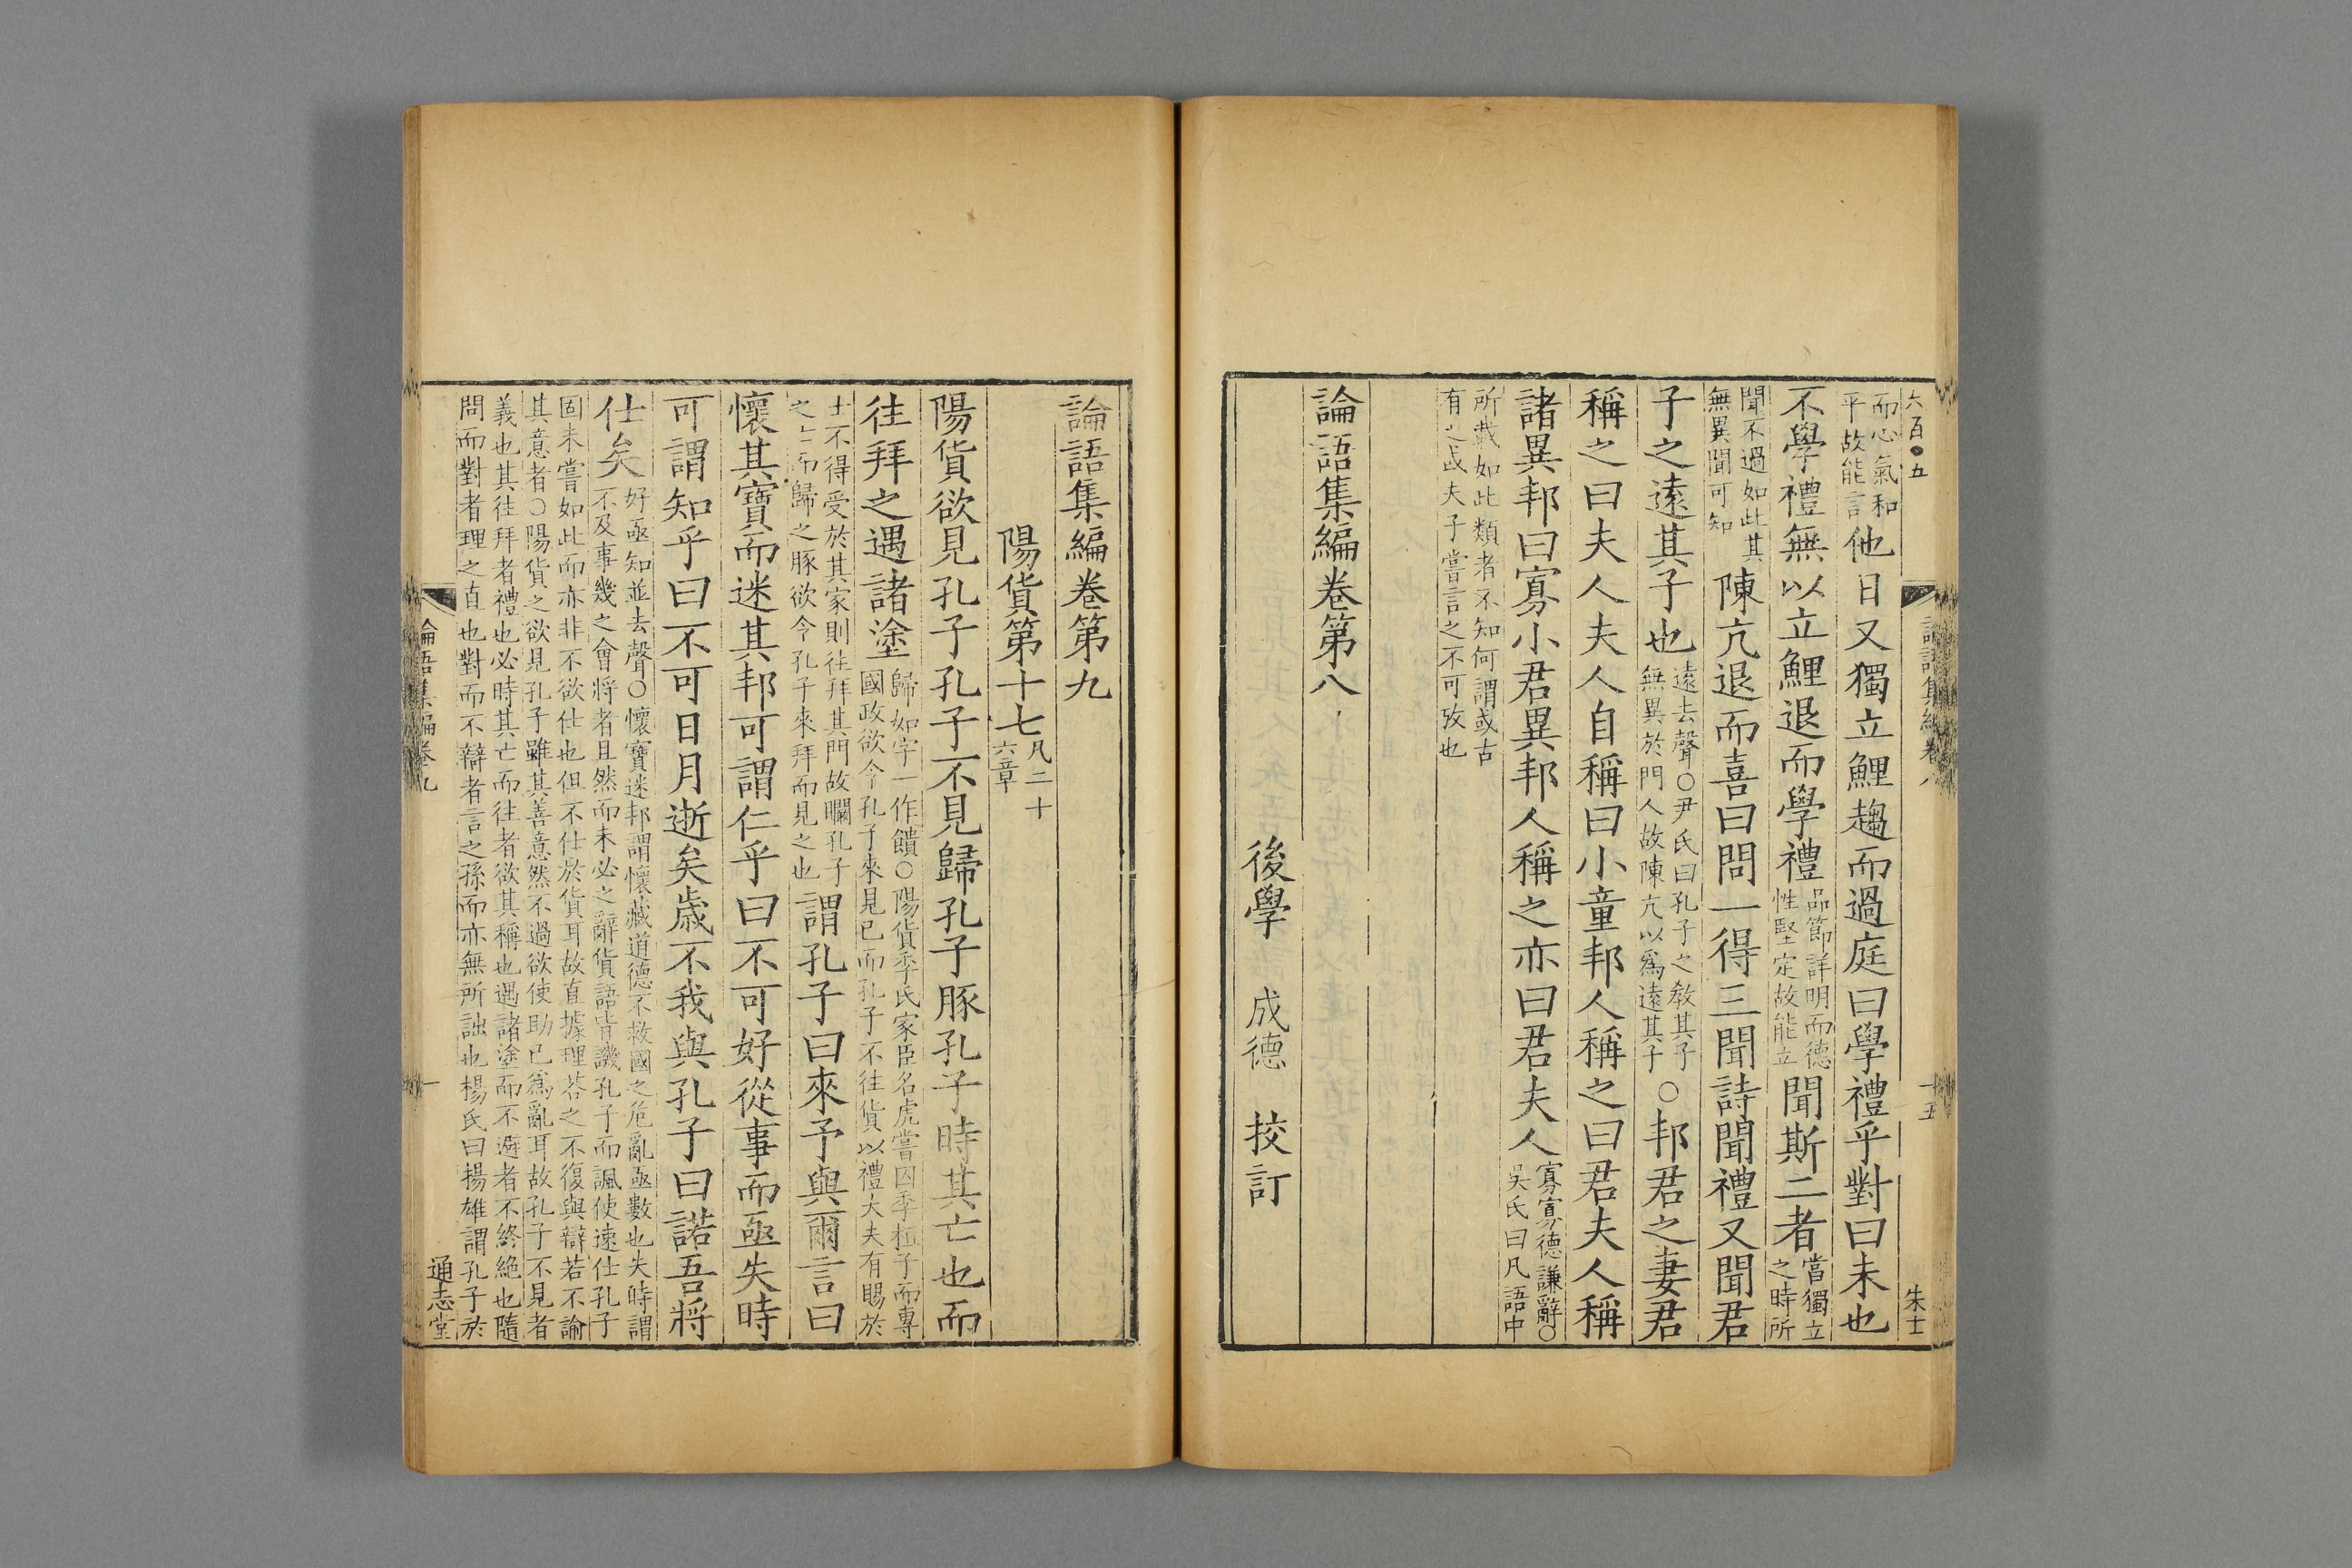 六百〇五
而心氣和
平故能言
他日又獨立鯉趨而過庭曰學禮乎對曰未也
不學禮無以立鯉退而學禮
品節詳明而德
性堅定故能立
聞斯二者
當獨立
之時所
聞不過如此其
無異聞可知
陳亢退而喜曰問一得三聞詩聞禮又聞君
子之遠其子也
遠去聲○尹氏曰孔子之敎其子
無異於門人故陳亢以爲遠其子
○邦君之妻君
稱之曰夫人夫人自稱曰小童邦人稱之曰君夫人稱
諸異邦曰寡小君異邦人稱之亦曰君夫人
寡寡德謙辭○
吳氏曰凡語中
所載如此類者不知何謂或古
有之或夫子嘗言之不可攷也
論語集編卷第八
後學 成德 挍訂
論語集編卷八
十五
朱士
論語集編卷第九
陽貨第十七
凡二十
六章
陽貨欲見孔子孔子不見歸孔子豚孔子時其亡也而
往拜之遇諸塗
歸如字一作饋○陽貨季氏家臣名虎嘗囚季桓子而專
國政欲令孔子來見已而孔子不往貨以禮大夫有賜於
士不得受於其家則往拜其門故瞷孔子
之亡而歸之豚欲令孔子來拜而見之也
謂孔子曰來予與爾言曰
懷其寶而迷其邦可謂仁乎曰不可好從事而亟失時
可謂知乎曰不可日月逝矣歲不我與孔子曰諾吾將
仕矣
好亟知並去聲○懷寶迷邦謂懷藏道德不救國之危亂亟數也失時謂
不及事幾之會將者且然而未必之辭貨語皆譏孔子而諷使速仕孔子
固未嘗如此而亦非不欲仕也但不仕於貨耳故直據理荅之不復與辯若不諭
其意者○陽貨之欲見孔子雖其善意然不過欲使助已爲亂耳故孔子不見者
義也其往拜者禮也必時其亡而往者欲其稱也遇諸塗而不避者不終絶也隨
問而對者理之直也對而不辯者言之孫而亦無所詘也楊氏曰揚雄謂孔子於
論語集編卷九
一
通志堂